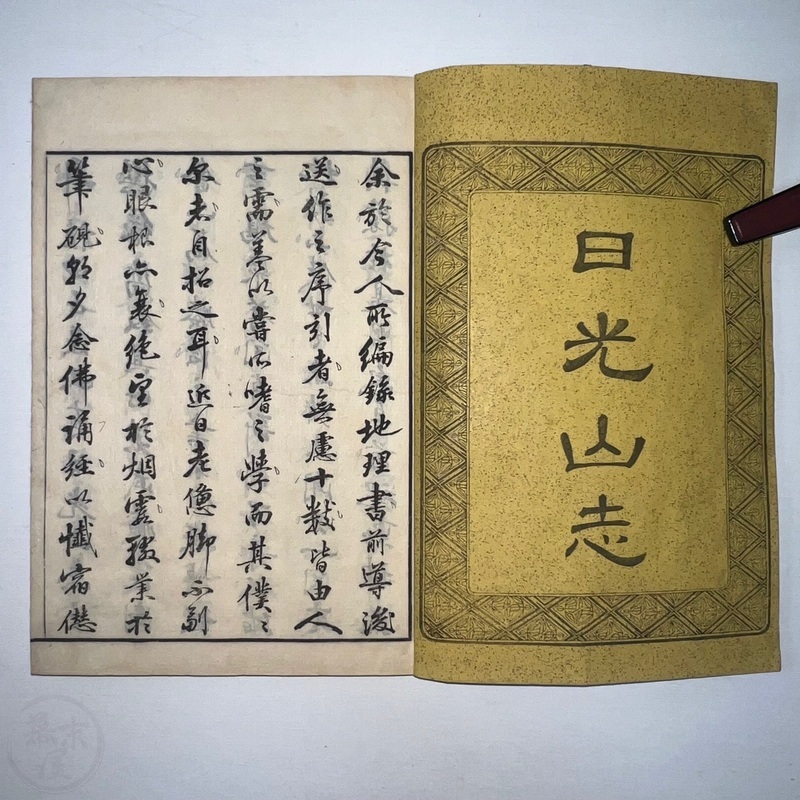 日光山志
余於今人所編錄地理書前導後
送作之序引者無慮十数皆由人
之需蓋以嘗所嗜之學而其僕〻
尔者自招之耳近日老憊脚不副
心眼根亦衰絶望於烟霞輟業於
筆硯朝夕念佛誦經以懺宿愆